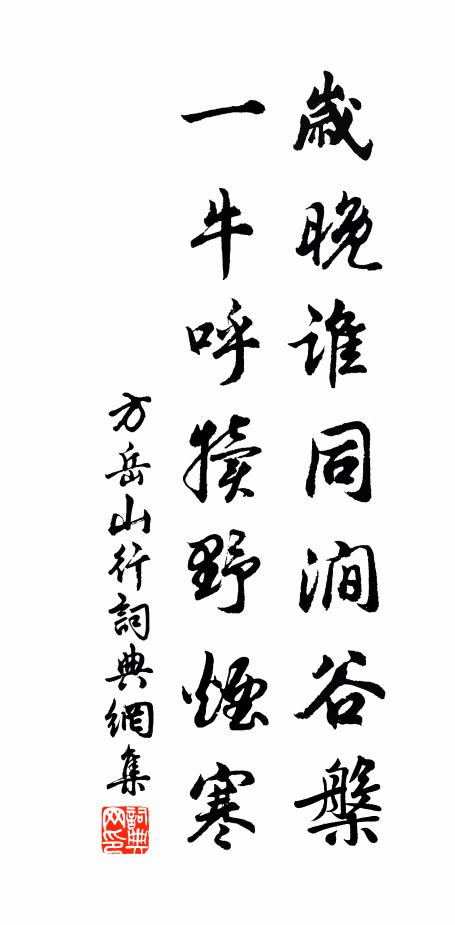 歲晚誰同澗谷槃
一牛呼犢野煙寒
方岳山行詞典網集
詞典網印